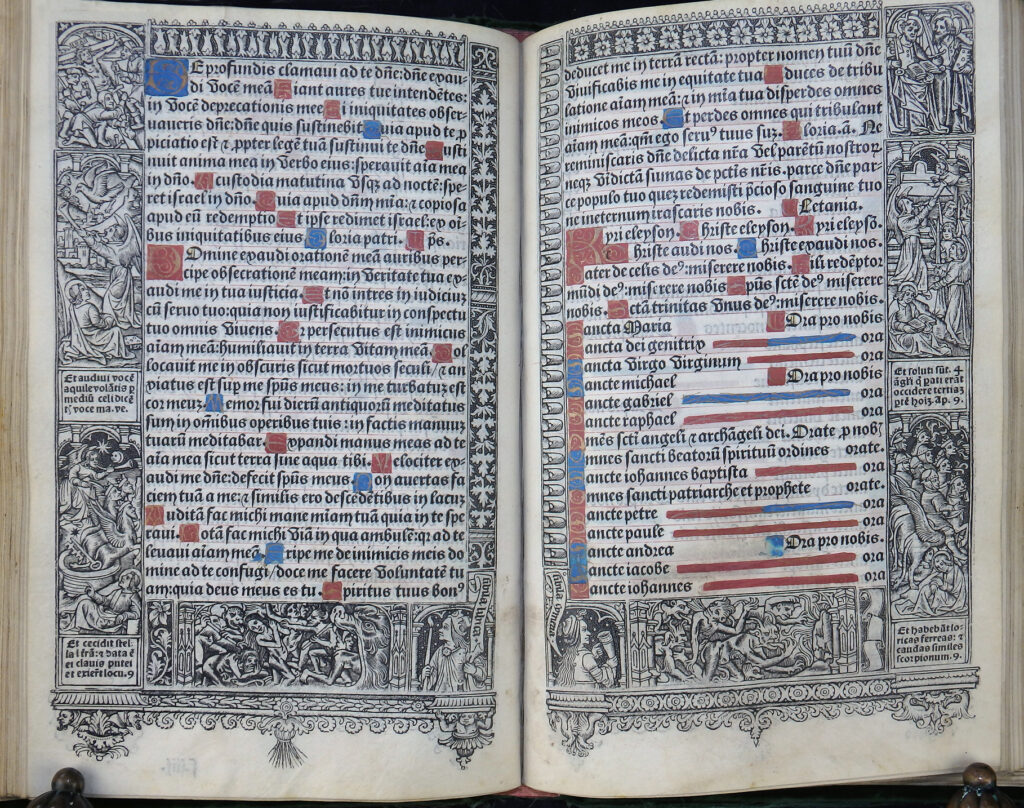 DE profundis clamaui ad te dñe: dñe exau-
di Vocē meā Fiant aures tue intendētes:
in Vocē deprecationis mee Si iniquitates obser-
uaueris dñe: dñe quis sustinebit Quia apud te p
piciatio est ⁊ ꝓpter legē tuā sustinui te dñe Susti
nuit anima mea in Verbo eius: sperauit aīa mea
in dño. A custodia matutina Vsqꝫ ad noctē: spe
ret israel in dño. Quia apud dñm mīa: ⁊ copiosa
apud eū redemptio Et ipse redimet israel: ex oi
bus iniquitatibus eius. Gloria patri. ps.
Domine exaudi orationē meā auribus per-
cipe obsecrationē meam: in Veritate tua ex
audi me in tua iusticia. Et nō intres in iudiciuꝫ
cū seruo tuo: quia non iustificabitur in conspectu
tuo omnis Viuens. Quia persecutus est inimicus
aīam meā: humiliauit in terra Vitam meā. Col
locauit me in obscuris sicut mortuos seculi / ⁊ an
xiatus est sup me spūs meus: in me turbatuꝫ est
cor meuꝫ Memor fui dierū antiquorū meditatus
sum in omibus operibus tuis: in factis manuuꝫ
tuarū meditabar. Expandi manus meas ad te
aīa mea sicut terra sine aqua tibi. Velociter ex-
audi me dñe: defecit spūs meus. Non auertas fa
ciem tuā a me: ⁊ similis ero descēdētibus in lacuꝫ
Auditā fac michi mane mīam tuā quia in te spe
raui. Notā fac michi Viā in qua ambulē: qꝛ ad te
leuaui aīam meā. Eripe me de inimicis meis do
mine ad te confugi / doce me facere Voluntatē tu
am: quia deus meus es tu. Spiritus tuus bonꝰ
Et audiui vocē
aquile volātis p
mediū celi dicē
tꝭ voce ma. ve.
Et cecidit stel-
la ī terrā: ⁊ data ē
ei clauis putei
et exierūt locu. 9
deducet me in terrā rectā: propter nomen tuū dñe
Viuificabis me in equitate tua Educes de tribu
latione aīam meā: ⁊ in mīa tua disperdes omnes
inimicos meos. Et perdes omnes qui tribulant
aīam meā: qm̄ ego seruꝰ tuus suꝫ. Gloria. a. Ne
reminiscaris dñe delicta nr̄a Vel parētū nostroꝝ
neqꝫ Vīdictā sumas de pctīs nr̄is. parce dñe par
ce populo tuo quez redemisti pcioso sanguine tuo
ne ineternum irascaris nobis. Letania.
Kyri eleyson. Christe eleyson. Kyri eleysō.
Christe audi nos. Christe exaudi nos.
Pater de celis deꝰ: miserere nobis. Filī redēptor
mūdi deꝰ: miserere nobis Spūs scte deꝰ miserere
nobis. Sctā trinitas Vnus deꝰ: miserere nobis.
Sancta Maria Ora pro nobis
Sancta dei genitrix ora
Sancta Virgo Virginum ora
Sancte michael Ora pro nobis
Sancte gabriel ora
Sancte raphael ora
Omēs scti angeli ⁊ archāgeli dei. Orate p nob
Omnes sancti beatorū spirituū ordines orate.
Sancte iohannes baptista ora
Omnes sancti patriarche et prophete orate.
Sancte petre ora
Sancte paule ora
Sancte andrea Ora pro nobis.
Sancte iacobe ora
Sancte iohannes ora
Et soluti sūt. 4
āgli q̄ pati erāt
occidere tertiaꝫ
ptē hoiꝫ. ap. 9.
Et habebāt lo-
ricas ferreas: ⁊
caudas similes
scorpionum. 9.